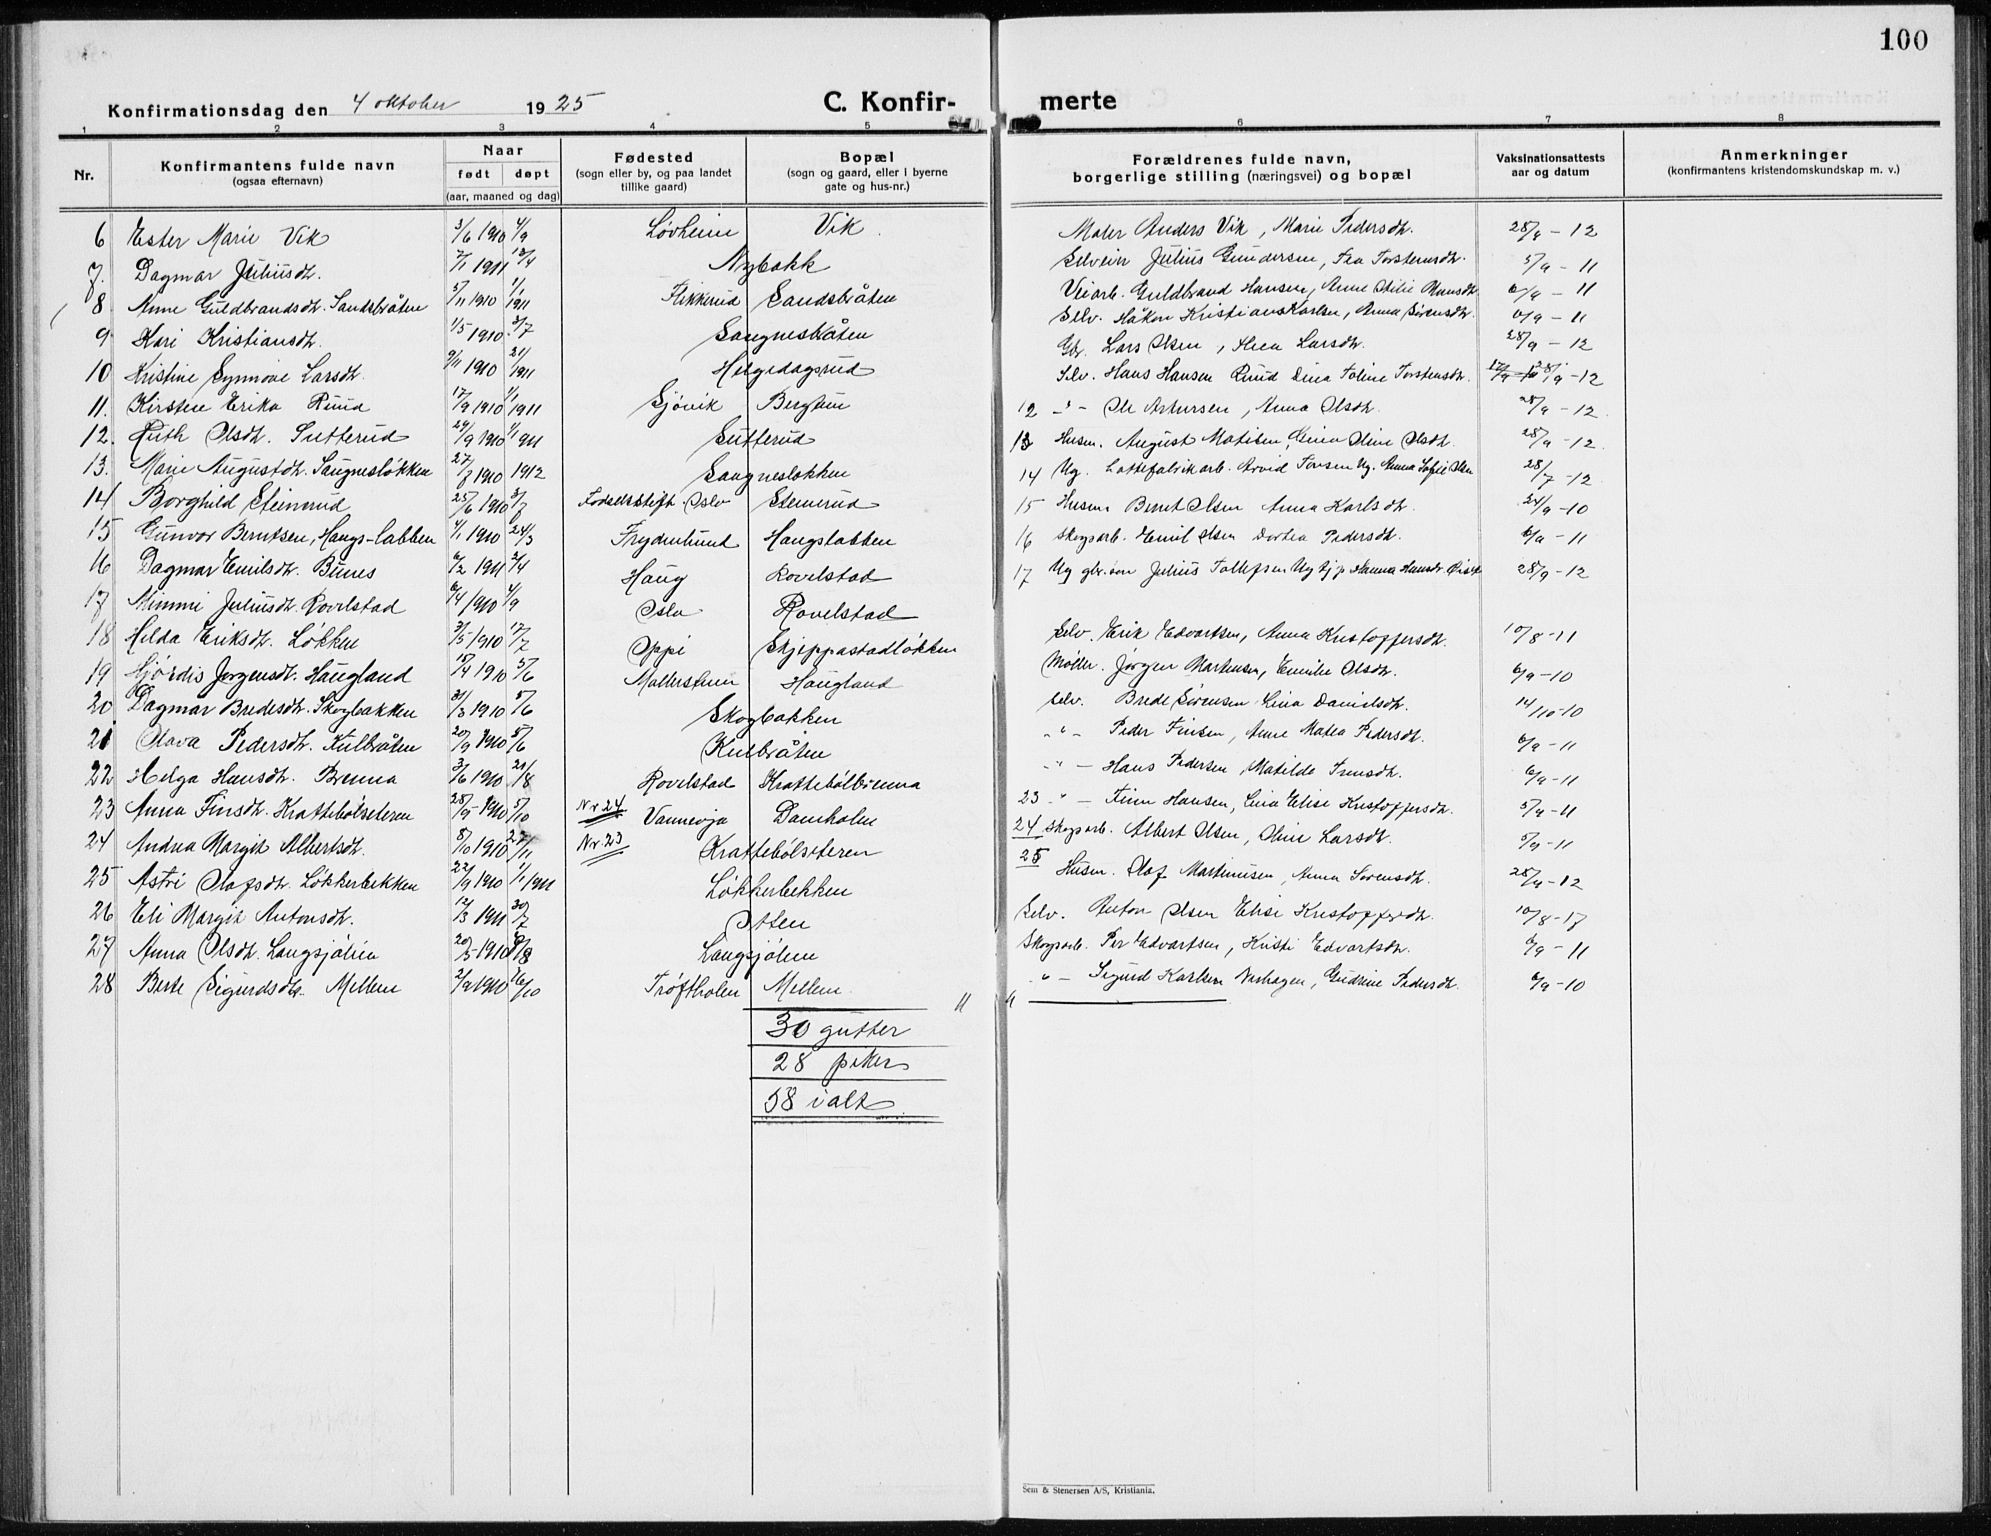 100
Konfirmationsdag den 4 oktober 1925
C. Konfir-
merte
1 2 3 4 5 6 7 8
Nr.
Konfirmantens fulde navn
(ogsaa efternavn)
Naar
født døpt
(aar, maaned og dag)
Fødested
(sogn eller by, og paa landet
tillike gaard)
Bopæl
(sogn og gaard, eller i byerne
gate og hus-nr.)
Forældrenes fulde navn,
borgerlige stilling (næringsvei) og bopæl
Vaksinationsattests
aar og datum
Anmerkninger
(konfirmantens kristendomskundskap m. v.)
6 Ester Marie Vik 3/6 1910 4/9 Løvheim Vik
7. Dagmar Juliusdt. 7/1 1911 Nybakk
8 Anne Guldbrandsdt. Sandsbråten 5/11 1910 1/1 1911 Flikkerud Sandsbråten
9 Kari Kristiansdt. 1/5 1910 3/7 Saugnesbråten
10 Kristine Synnøve Larsdt. 9/11 1910 21/1 1911 Helgedagsrud
11. Kirsten Erika Ruud 17/9 1910 1/1 1911 Sjøvik Bergtun
12. Ruth Olsdt. Sutterud 24/9 1910 1/1 1911 Sutterud
13. Marie Augustdt. Saugnesløkken 27/7 1910 1912 Saugnesløkken
14 Borghild Steinerud 25/6 1910 3/7 Fødselsstift. Oslo Steinerud
15 Gunvor Berntsen, Haugs-labben 4/1 1910 24/3 Frydenlund Haugslabben
16 Dagmar Emilsdt. Bunes 6/2 1911 2/4 Haug Rovelstad
17 Mimmi Juliusdt. Rovelstad 6/4 1910 4/9 Oslo Rovelstad
18 Hilda Eriksdt. Løkken 31/5 1910 17/7 Oppi Skjeppestadløkken
19 Hjørdis Jørgensdt. Haugland 15/4 1910 5/6 Møllerstuen Haugland
20 Dagmar Bredesdt. Skogbakken 31/3 1910 5/6 Skogbakken
21 Olava Pedersdt. Kulbråten 20/9 1910 5/6 Kulbråten
22 Helga Hansdt. Brenna 3/6 1910 21/8 Rovelstad Krattebølbrenna
23 Anna Finsdt. Krattebølseteren 28/5 1910 5/10 Nr 24 Vannevja Damholen
24 Andrea Margit Albertsdt. 8/10 1910 27/11 Nr 23 Krattebølseteren
25 Astri Olafsdt. Løkkerbekken 22/9 1910 1/1 1911 Løkkerbekken
26 Eli Margit Antonsdt. 12/3 1911 30/7 Otten
27 Anna Olsdt. Langsjølien 20/5 1910 Langsjølien
28 Berte Sigurdsdtr. Mellem 2/9 1910 16/10 Trøftholen Mellem
30 gutter
28 piker
58 ialt
Maler Anders Vik, Marie Pedersdt. 28/9 - 12
Selveier Julius Gundersen, Fea Torstensdt. 5/9 - 11
Veiarb. Guldbrand Hansen, Anne Otilie Hansdt. 6/9 - 11
Selv. Håkon Kristian Karlsen, Anna Sørensdt. 6/9 - 11
Gbr. Lars Olsen, Thea Larsdt. 28/9 - 12
Selv. Hans Hansen Ruud Dina Toline Torstensdt. 28/9 - 12
12 -"- Ole Arthursen, Anna Olsdt. 28/9 - 12.
13 Husm. August Matisen, Lina Oline Olsdt. 28/9 - 12.
14 Ug. Lottefabrikarb. Arvid Torsen Ug. Anna Sofie Olsen 28/7 - 12.
15 Husm Bernt Olsen Anna Karlsdt. 24/9 - 10
16 Skogsarb. Emil Olsen Dortea Pedersdt. 6/9 - 11
17 Ug gbr.søn Julius Tollefsen Ug tj.p Hanna Hansdt. 28/9 - 12
Selv. Erik Edvartsen, Anna Kristoffersdt. 10/8 - 11
Møller. Jørgen Martinsen, Emilie Olsdt. 6/9 - 10
Selv. Brede Sørensen Lina Danielsdt. 14/10 - 10
-"- Peder Finsen, Anne Matea Pedersdt. 6/9 - 11
-"- Hans Pedersen, Matilde Jensdt. 6/9 - 11
23 -"- Finn Hansen, Lina Elise Kristoffersdt. 5/9 - 11
24 Skogsarb. Albert Olsen, Oline Larsdt. 5/9 - 11
25 Husm. Olaf Martinusen, Anna Sørensdt. 28/9 - 12
Selv. Anton Olsen Elise Kristoffersdt. 10/8 - 17
Skogsarb. Per Edvartsen, Kristi Edvartsdt. 6/9 - 11
-"- Sigurd Karlsen Norhagen, Gudrine Pedersdt. 6/9 - 10
Sem & Stenersen A/S, Kristiania.